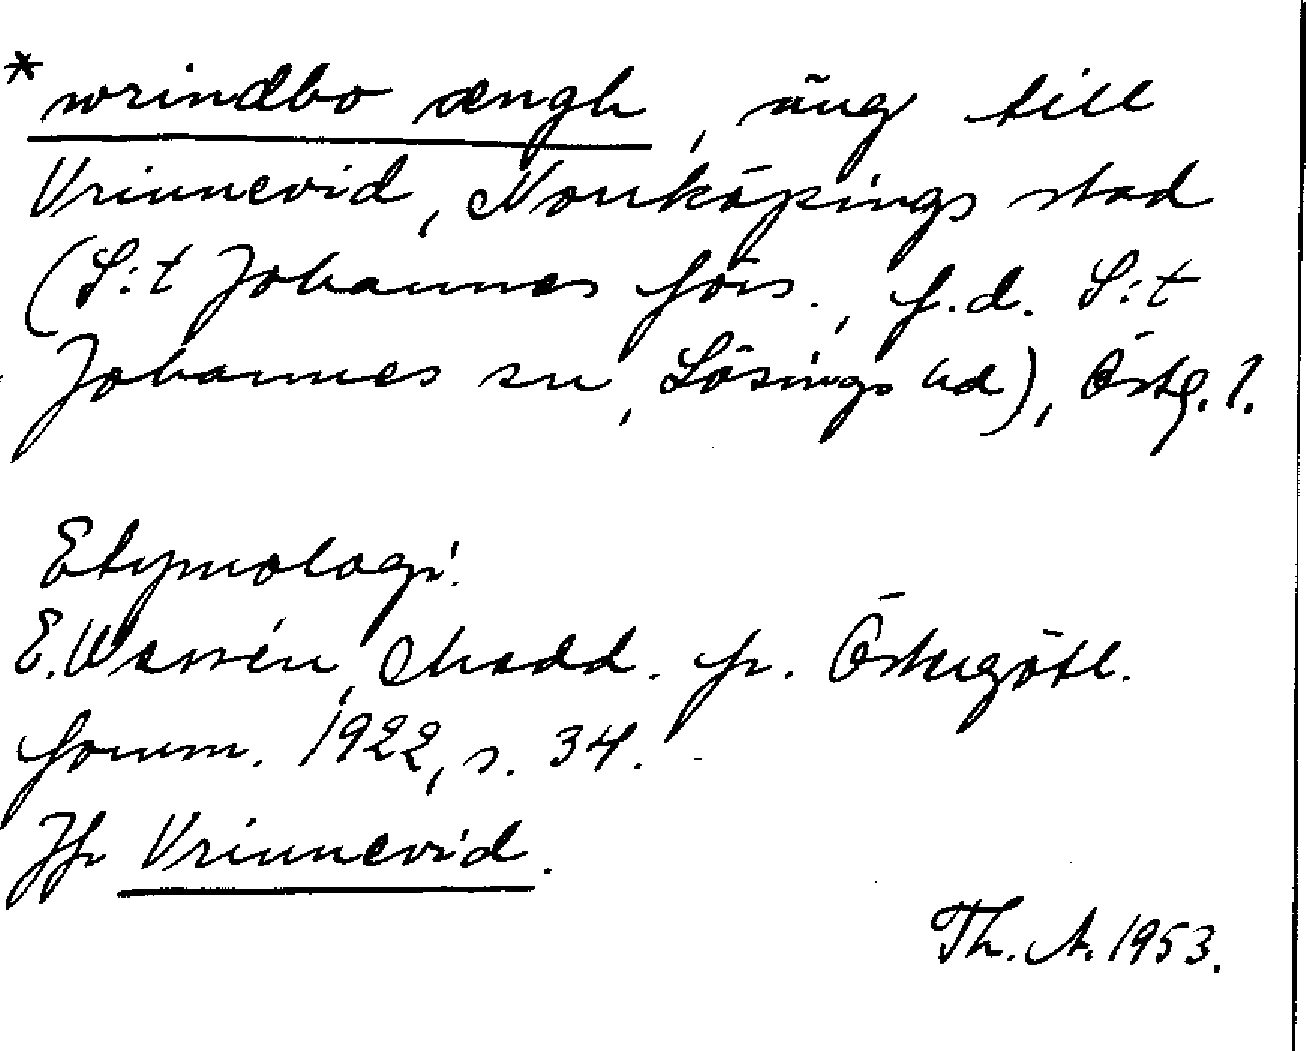 *wrindbo ængh, äng till
Vrinnevid, Norrköpings stad
(S:t Johannes förs., f.d. S:t
Johannes sn, Lösings hd), Östg. l.
Etymologi:
E. Wessén, Medd. fr. Östergötl.
fornm. 1922, s. 34.
Jfr Vrinnevid.
Th. A. 1953.